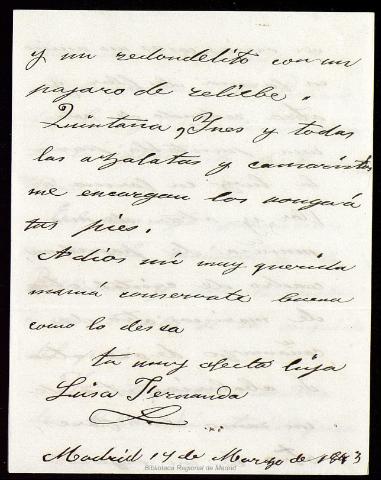 y un redondelito con un
pajaro de reliebe.
Quintana, Ynes y todas
las azalatas y camaristas
me encargan los ponga á
tus pies.
Adios mi muy querida
mamá conservate buena
como lo desea
tu muy afecta hija
Luisa Fernanda
Madrid 14 de Marzo de 1843
Biblioteca Regional de Madrid